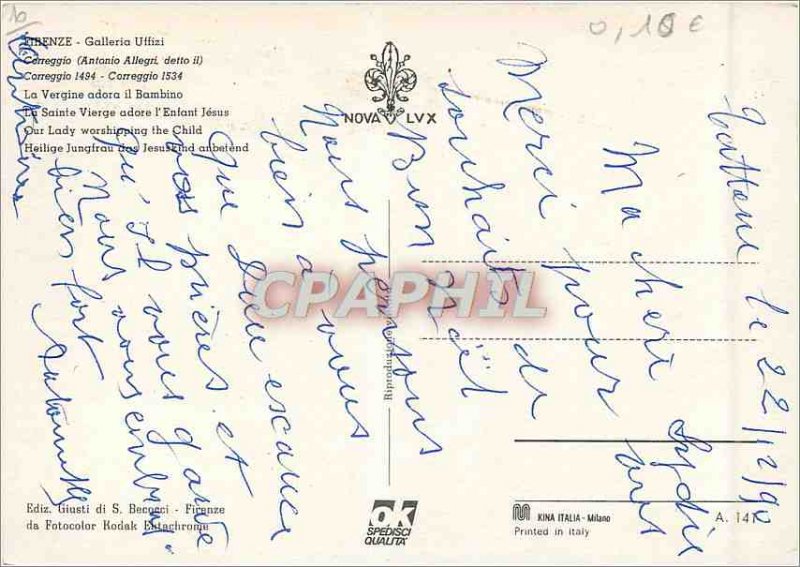 0,10 €
FIRENZE - Galleria Uffizi
Correggio (Antonio Allegri, detto il)
Correggio 1494 - Correggio 1534
La Vergine adora il Bambino
La Sainte Vierge adore l'Enfant Jésus
Our Lady worshipping the Child
Heilige Jungfrau das Jesuskind anbetend
NOVA LVX
le 22/12/90
Ma cherè Lydie
Merci pour vos
souhaits de
Bon Noël
Nous pensons
bien à vous
Que Dieu exauce
nos prières et
qu'il vous garde
Nous vous embrassons
bien fort
CPAPHIL
Ediz. Giusti di S. Becocci - Firenze
da Fotocolor Kodak Ektachrome
ok
SPEDISCI
QUALITÀ
KINA ITALIA - Milano
Printed in Italy
A. 141